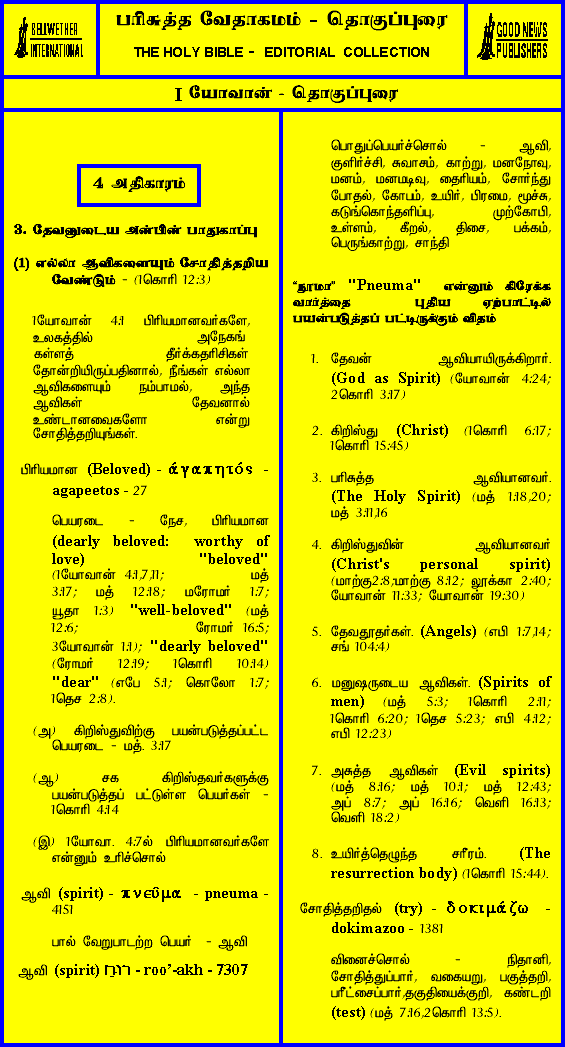 BELLWETHER
INTERNATIONAL
பரிசுத்த வேதாகமம் - தொகுப்புரை
THE HOLY BIBLE - EDITORIAL COLLECTION
GOOD NEWS
PUBLISHERS
I யோவான் - தொகுப்புரை
4 அதிகாரம்
3. தேவனுடைய அன்பின் பாதுகாப்பு
(1) எல்லா ஆவிகளையும் சோதித்தறிய
வேண்டும் - (1கொரி 12:3)
1யோவான் 4:1 பிரியமானவர்களே,
உலகத்தில் அநேகங்
கள்ளத் தீர்க்கதரிசிகள்
தோன்றியிருப்பதினால், நீங்கள் எல்லா
ஆவிகளையும் நம்பாமல், அந்த
ஆவிகள் தேவனால்
உண்டானவைகளோ என்று
சோதித்தறியுங்கள்.
பிரியமான (Beloved) - ἀγαπητός -
agapeetos - 27
பெயரடை - நேச, பிரியமான
(dearly beloved: worthy of
love) "beloved"
(1யோவான் 4:1,7,11; மத்
3:17; மத் 12:18; மரோமர் 1:7;
யூதா 1:3) "well-beloved" (மத்
12:6; ரோமர் 16:5;
3யோவான் 1:1); "dearly beloved"
(ரோமர் 12:19; 1கொரி 10:14)
"dear" (எபே 5:1; கொலோ 1:7;
1தெச 2:8).
(அ) கிறிஸ்துவிற்கு பயன்படுத்தப்பட்ட
பெயரடை - மத். 3:17
(ஆ) சக கிறிஸ்தவர்களுக்கு
பயன்படுத்தப் பட்டுள்ள பெயர்கள் -
1கொரி 4:14
(இ) 1யோவா. 4:7ல் பிரியமானவர்களே
என்னும் உரிச்சொல்
ஆவி (spirit) - πνεῦμα - pneuma -
4151
பால் வேறுபாடற்ற பெயர் - ஆவி
ஆவி (spirit) רוח - roo'-akh - 7307
பொதுப்பெயர்ச்சொல் - ஆவி,
குளிர்ச்சி, சுவாசம், காற்று, மனநோவு,
மனம், மனமடிவு, தைரியம், சோர்ந்து
போதல், கோபம், உயிர், பிரமை, மூச்சு,
கடுங்கொந்தளிப்பு, முற்கோபி,
உள்ளம், கீறல், திசை, பக்கம்,
பெருங்காற்று, சாந்தி
"நூமா" "Pneuma" என்னும் கிரேக்க
வார்த்தை புதிய ஏற்பாட்டில்
பயன்படுத்தப் பட்டிருக்கும் விதம்
1. தேவன் ஆவியாயிருக்கிறார்.
(God as Spirit) (யோவான் 4:24;
2கொரி 3:17)
2. கிறிஸ்து (Christ) (1கொரி 6:17;
1கொரி 15:45)
3. பரிசுத்த ஆவியானவர்.
(The Holy Spirit) (மத் 1:18,20;
மத் 3:11,16
4. கிறிஸ்துவின் ஆவியானவர்
(Christ's personal spirit)
(மாற்கு2:8;மாற்கு 8:12; லூக்கா 2:40;
யோவான் 11:33; யோவான் 19:30)
5. தேவதூதர்கள். (Angels) (எபி 1:7,14;
சங் 104:4)
6. மனுஷருடைய ஆவிகள். (Spirits of
men) (மத் 5:3; 1கொரி 2:11;
1கொரி 6:20; 1தெச 5:23; எபி 4:12;
எபி 12:23)
7. அசுத்த ஆவிகள் (Evil spirits)
(மத் 8:16; மத் 10:1; மத் 12:43;
அப் 8:7; அப் 16:16; வெளி 16:13;
வெளி 18:2)
8. உயிர்த்தெழுந்த சரீரம். (The
resurrection body) (1கொரி 15:44).
சோதித்தறிதல் (try) - δοκιμάζω -
dokimazoo - 1381
வினைச்சொல் - நிதானி,
சோதித்துப்பார், வகையறு, பகுத்தறி,
பரீட்சைப்பார்,தகுதியைக்குறி, கண்டறி
(test) (மத் 7:16,2கொரி 13:5).